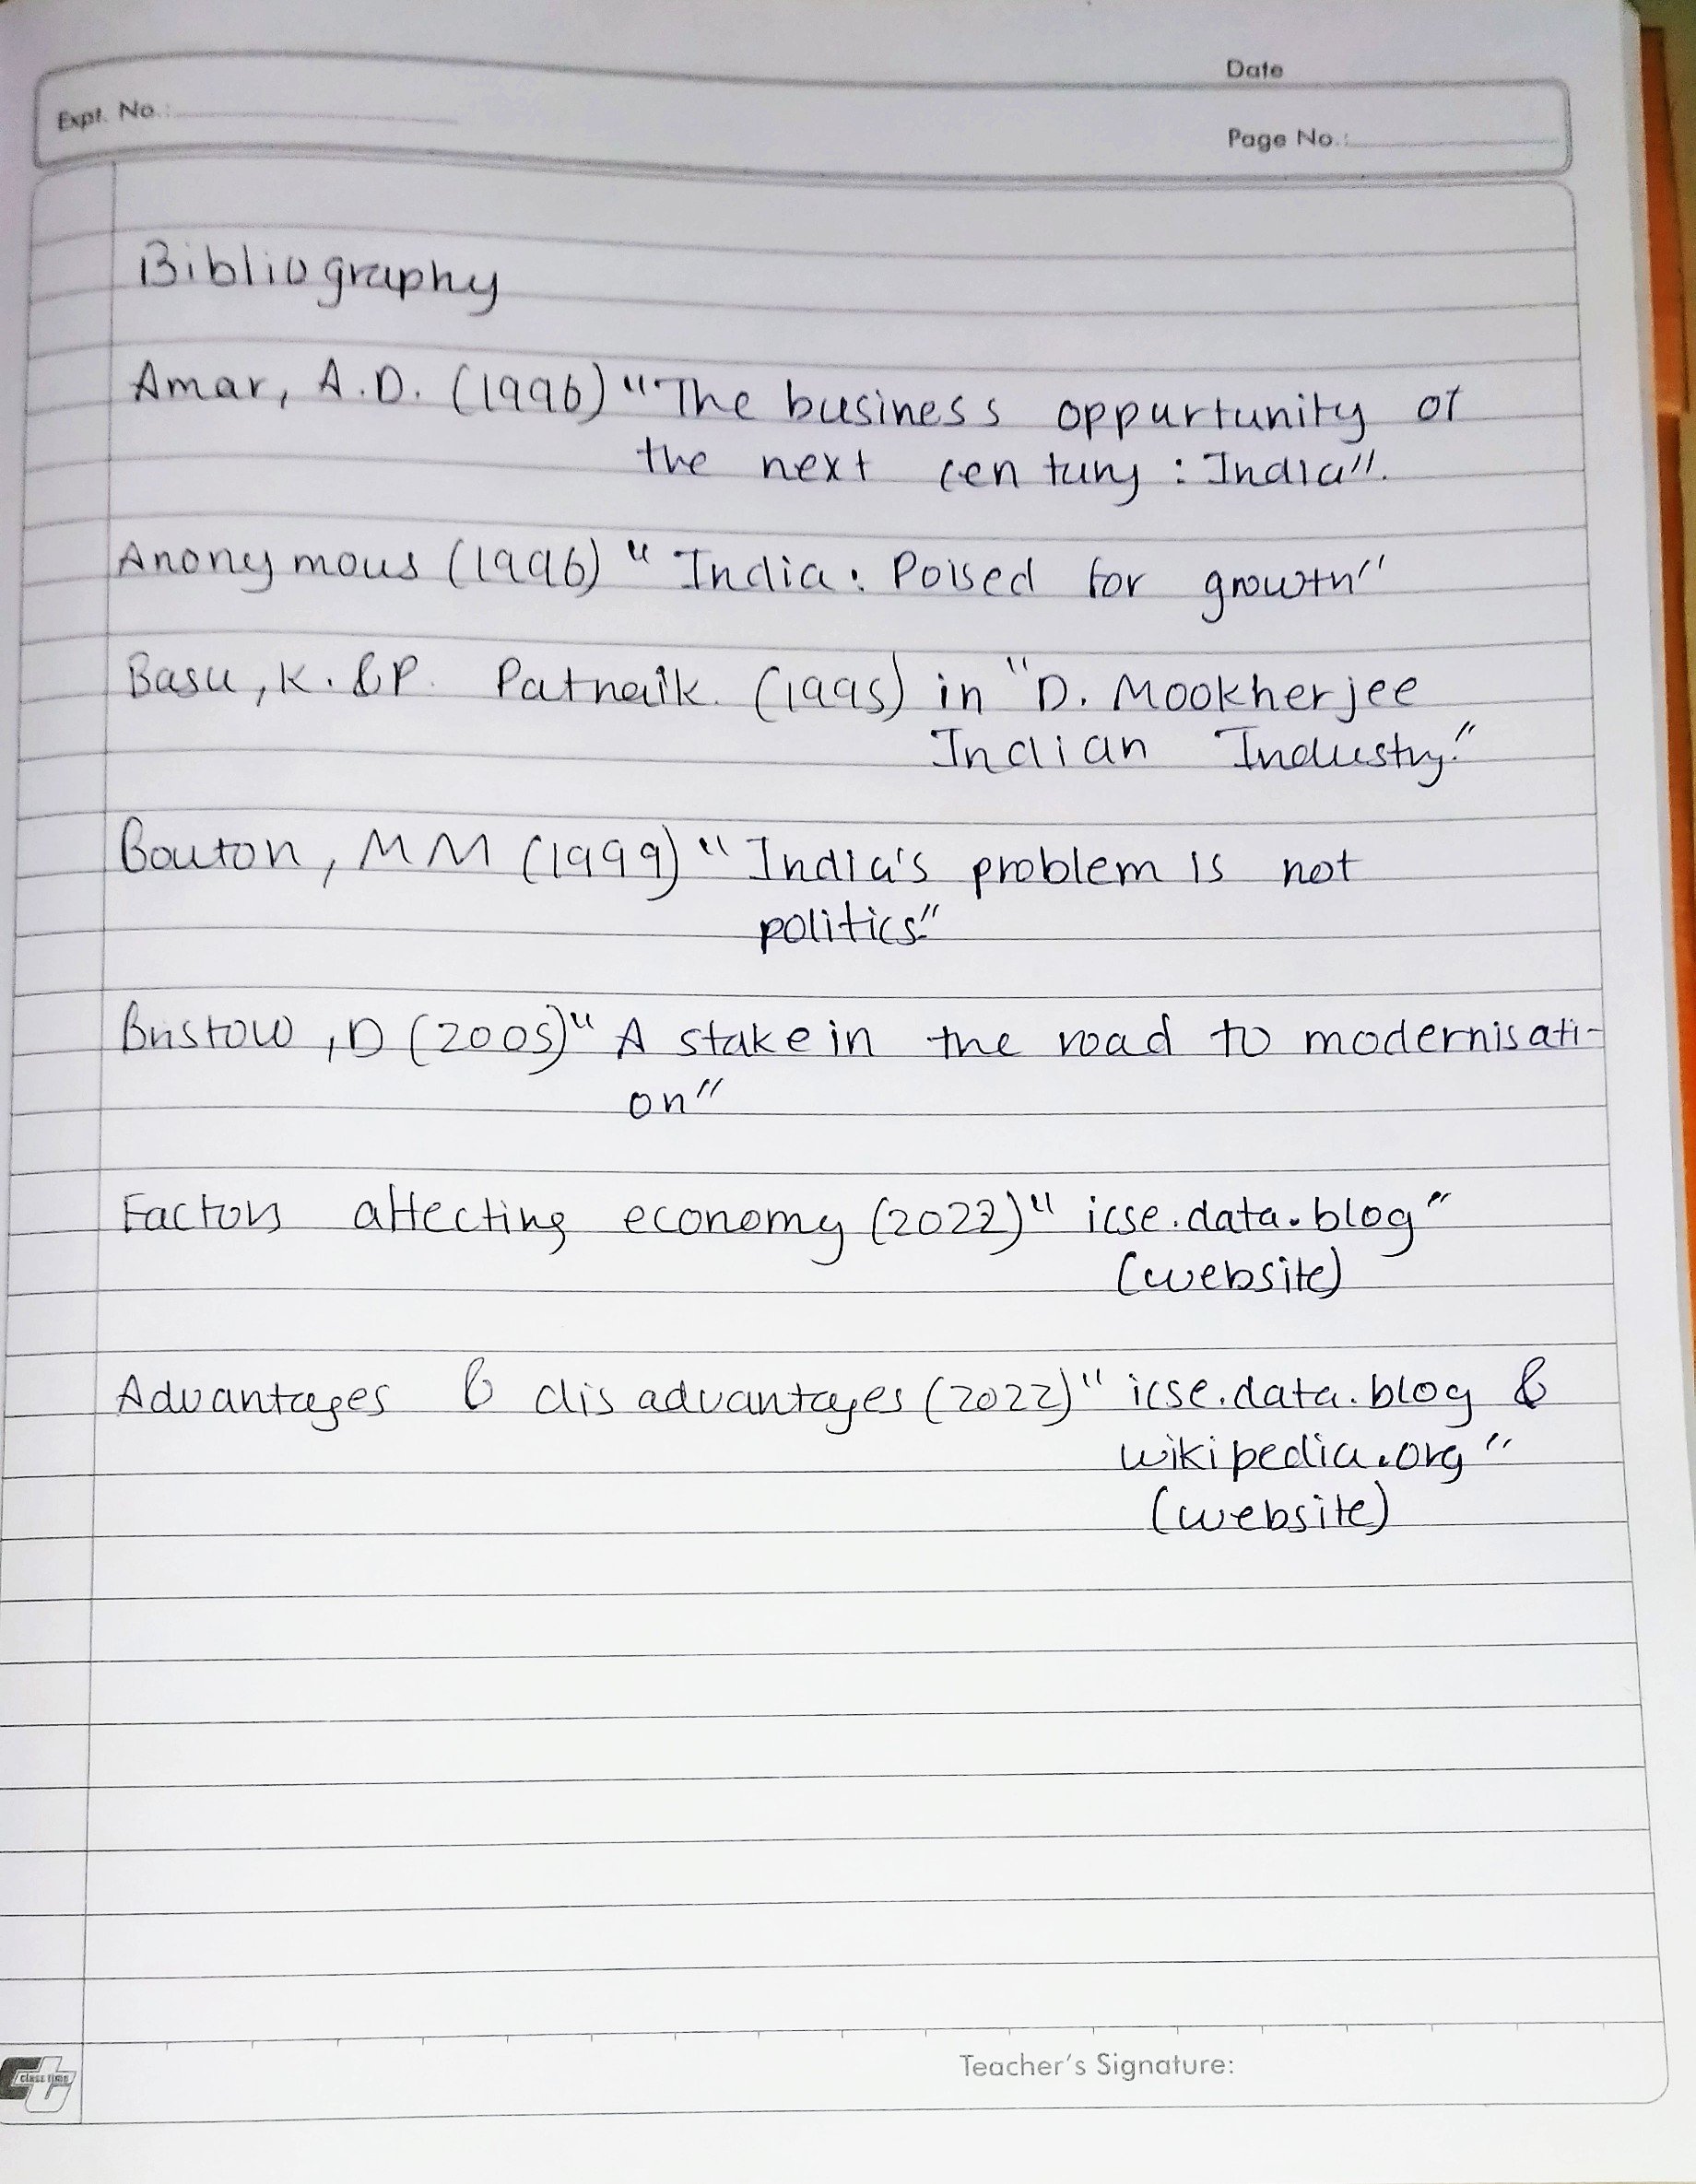 Date
Expt. No.:
Page No.:
Bibliography
Amar, A.D. (1996) "The business oppurtunity of
the next century : India".
Anonymous (1996) "India: Poised for growth"
Basu, K. & P. Patnaik. (1995) in "D. Mookherjee
Indian Industry."
Bouton, MM (1999) "India's problem is not
politics."
Bristow, D (2005) "A stake in the road to modernisati-
on"
Factors affecting economy (2022) "icse.data.blog"
(website)
Advantages & disadvantages (2022) "icse.data.blog &
wikipedia.org"
(website)
Teacher's Signature:
ct
class time